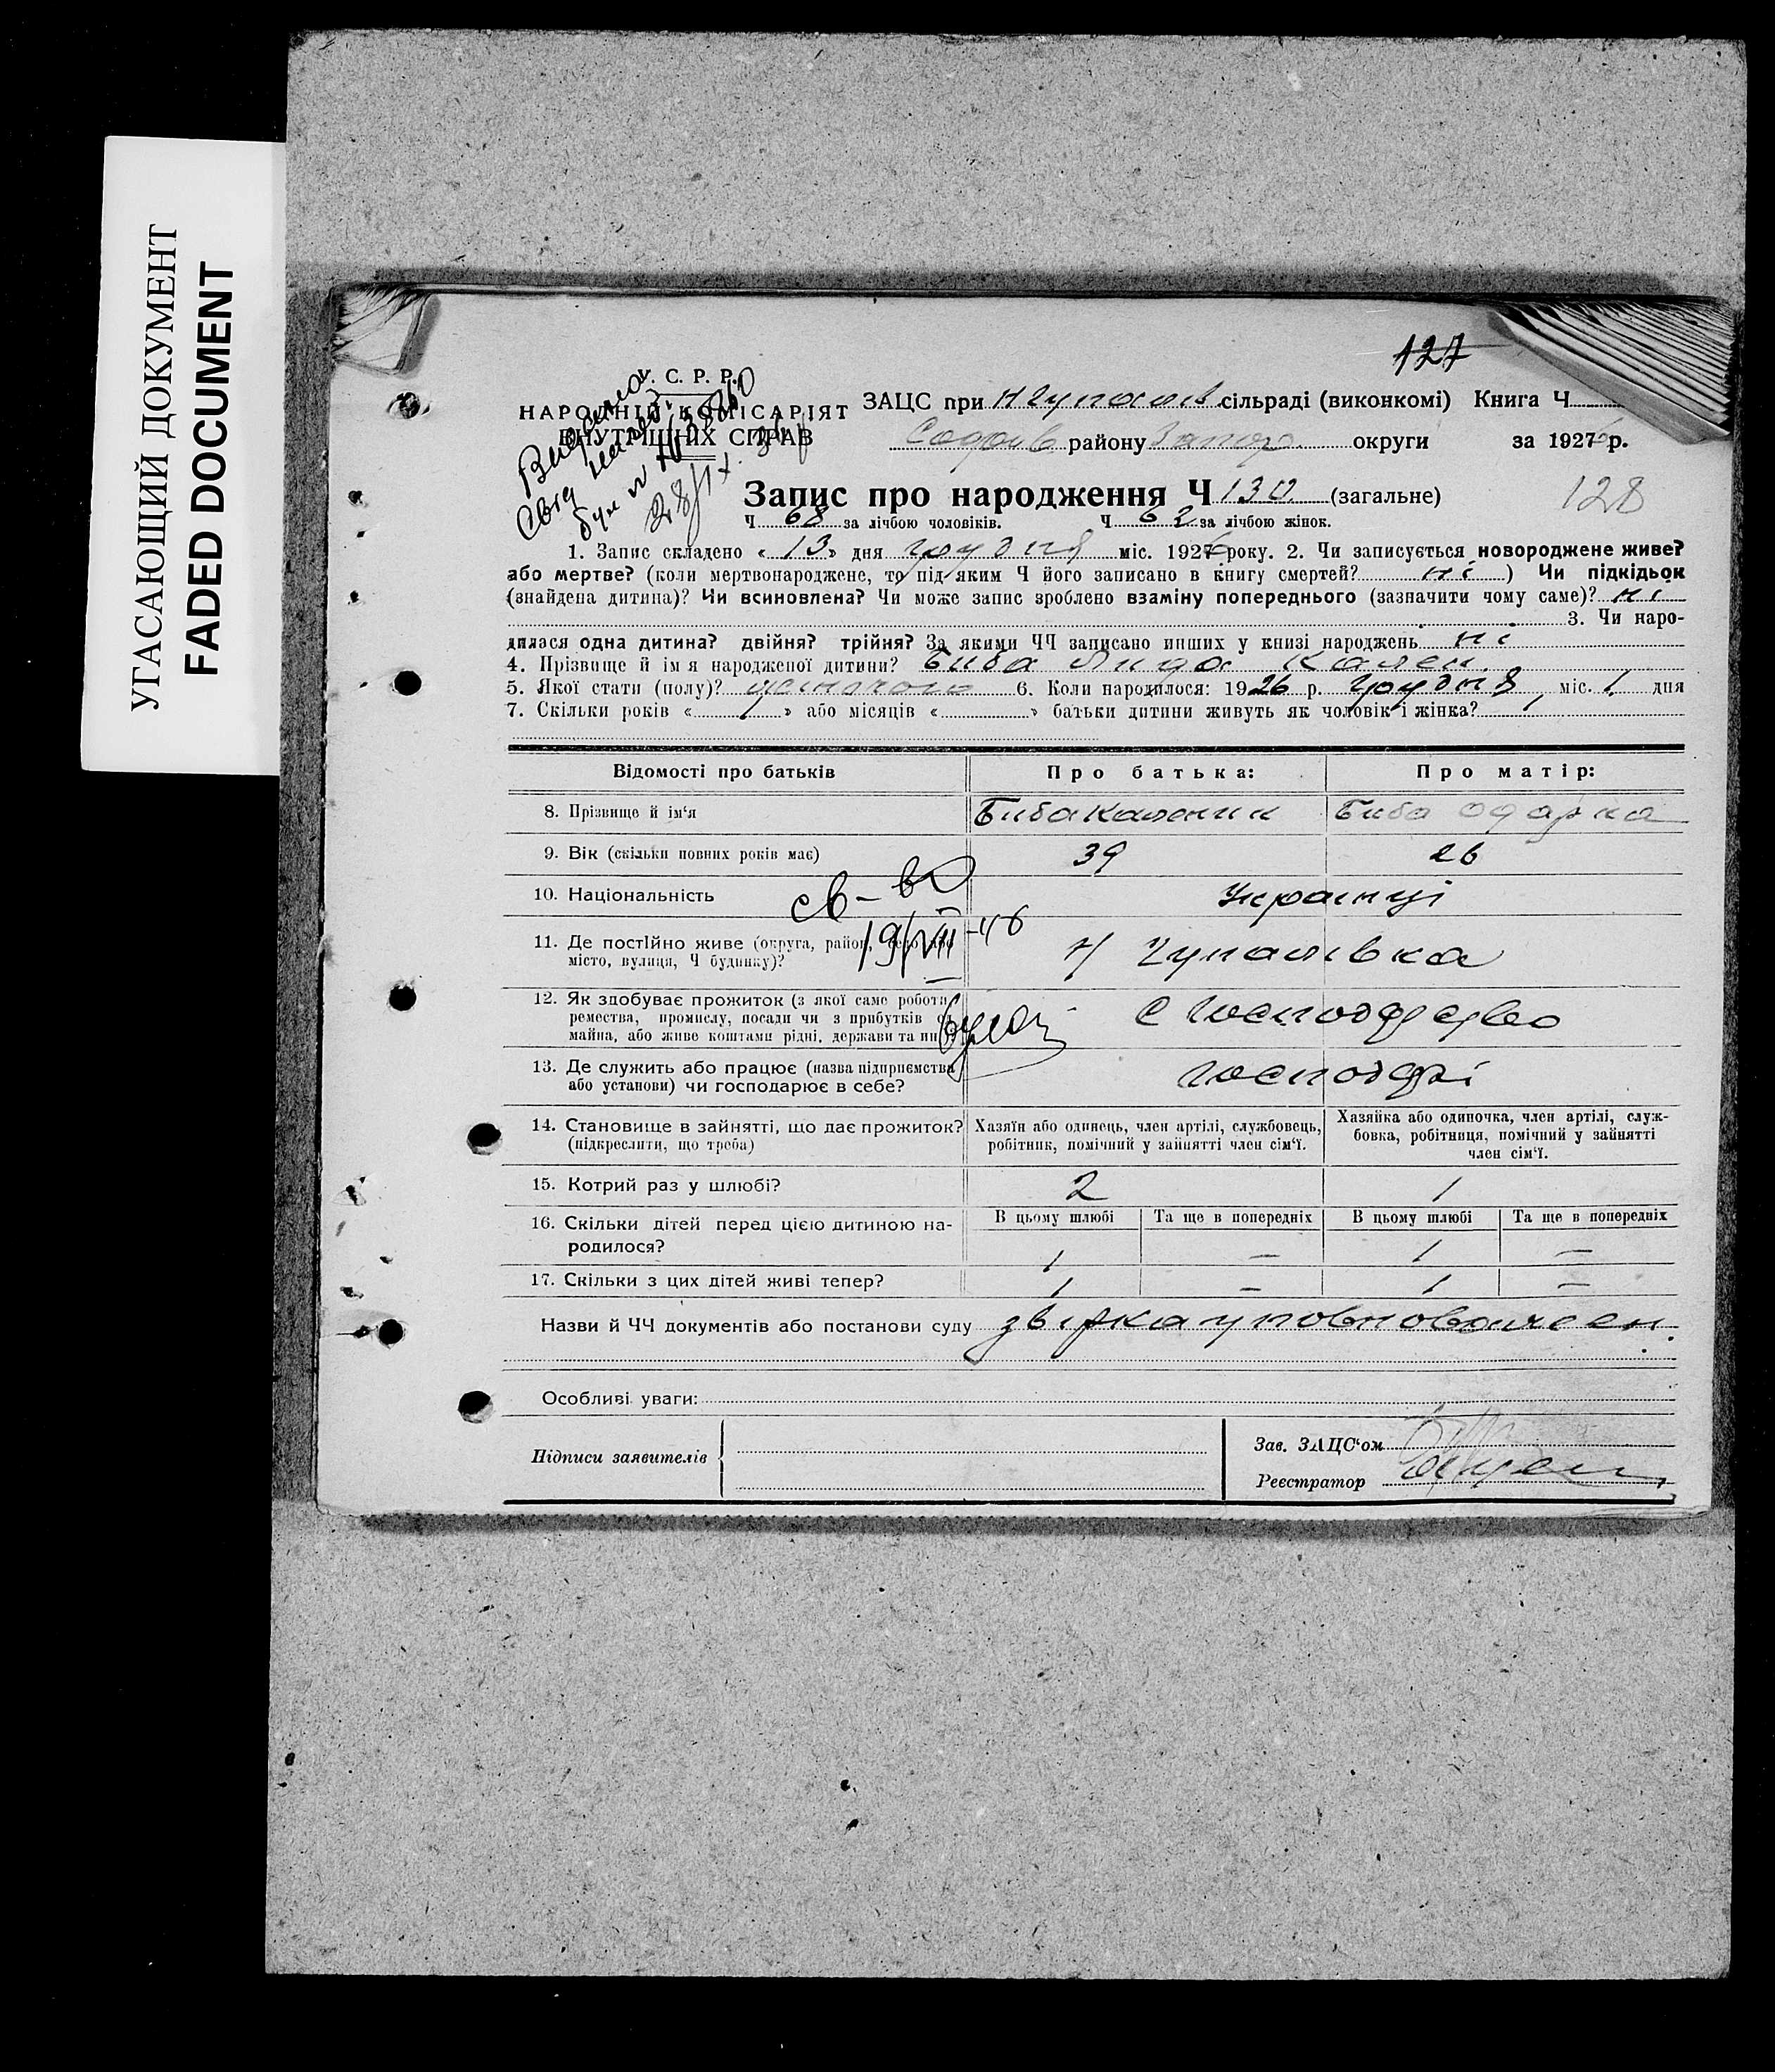 УГАСАЮЩИЙ ДОКУМЕНТ
FADED DOCUMENT
127
У. С. Р. Р.
НАРОДНІЙ КОМІСАРІЯТ
ВНУТРІШНІХ СПРАВ
ЗАЦС при Н Чупалів сільраді (виконкомі) Книга Ч
Софіїв району Запор округи за 1926 р.
28/IX
Запис про народження Ч 130 (загальне)
128
Ч 68 за лічбою чоловіків. Ч 62 за лічбою жінок.
1. Запис складено « 13 » дня грудня міс. 1926 року. 2. Чи записується новороджене живе?
або мертве? (коли мертвонароджене, то під яким Ч його записано в книгу смертей? ні ) Чи підкідьок
(знайдена дитина)? Чи всиновлена? Чи може запис зроблено взаміну попереднього (зазначити чому саме)? ні
3. Чи наро-
дилася одна дитина? двійня? трійня? За якими ЧЧ записано инших у книзі народжень ні
4. Прізвище й ім'я народженої дитини? Биба Лида Кален.
5. Якої стати (полу)? жіночого 6. Коли народилося: 1926 р. грудня міс. 1 дня
7. Скільки років « 1 » або місяців « » батьки дитини живуть як чоловік і жінка?
Відомості про батьків
Про батька:
Про матір:
8. Прізвище й ім'я
Биба Каленик
Биба Одарка
9. Вік (скільки повних років має)
39
26
10. Національність
Українці
св-во
19/VII-46
11. Де постійно живе (округа, район, село або
місто, вулиця, Ч будинку)?
Н Чупалівка
12. Як здобуває прожиток (з якої саме роботи
ремества, промислу, посади чи з прибутків од
майна, або живе коштами рідні, держави та ин.)?
С Господарство
13. Де служить або працює (назва підприємства
або установи) чи господарює в себе?
господарі
14. Становище в зайнятті, що дає прожиток?
(підкреслити, що треба)
Хазяїн або одинець, член артілі, службовець,
робітник, помічний у зайнятті член сім'ї.
Хазяйка або одиночка, член артілі, служ-
бовка, робітниця, помічний у зайнятті
член сім'ї.
15. Котрий раз у шлюбі?
2
1
16. Скільки дітей перед цією дитиною на-
родилося?
В цьому шлюбі
Та ще в попередніх
В цьому шлюбі
Та ще в попередніх
1 — 1 —
17. Скільки з цих дітей живі тепер?
1 — 1 —
Назви й ЧЧ документів або постанови суду звірка уповноважен.
Особливі уваги:
Підписи заявителів
Зав. ЗАЦС'ом
Реєстратор